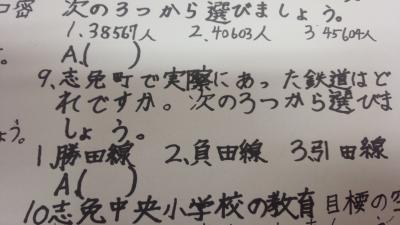 口密 次の3つから選びましょう。
1.38567人 2.40603人 3.45604人
A.( )
9.志免町で実際にあった鉄道はど
れですか。次の3つから選びま
しょう。
ょう。
1.勝田線 2.負田線 3.引田線
A( )
10志免中央小学校の教育目標の空